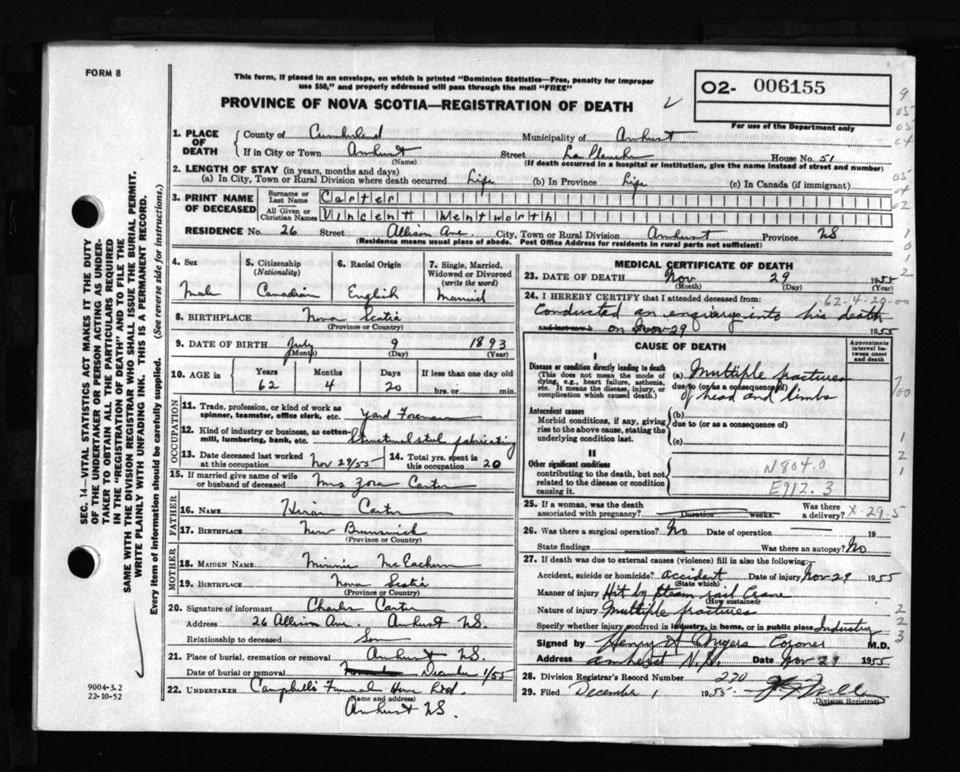 FORM 8
This form, if placed in an envelope, on which is printed "Dominion Statistics—Free, penalty for improper
use $50," and properly addressed will pass through the mail "FREE"
PROVINCE OF NOVA SCOTIA—REGISTRATION OF DEATH
O2- 006155
For use of the Department only
1. PLACE OF DEATH
County of Cumberland Municipality of Amherst
If in City or Town Amherst Street La Planche House No. 51
(Name) (If death occurred in a hospital or institution, give the name instead of street and number)
2. LENGTH OF STAY (in years, months and days)
(a) In City, Town or Rural Division where death occurred Life (b) In Province Life (c) In Canada (if immigrant)
3. PRINT NAME OF DECEASED
Surname or Last Name Carter
All Given or Christian Names Vincent Wentworth
RESIDENCE No. 26 Street Allison Ave. City, Town or Rural Division Amherst Province NS.
(Residence means usual place of abode. Post Office Address for residents in rural parts not sufficient)
4. Sex Male
5. Citizenship (Nationality) Canadian
6. Racial Origin English
7. Single, Married, Widowed or Divorced (write the word) Married
8. BIRTHPLACE Nova Scotia
(Province or Country)
9. DATE OF BIRTH July 9 1893
(Month) (Day) (Year)
10. AGE in Years Months Days If less than one day old
62 4 20 hrs. or min.
OCCUPATION
11. Trade, profession, or kind of work as spinner, teamster, office clerk, etc. Yard Foreman
12. Kind of industry or business, as cotton-mill, lumbering, bank, etc. Structural steel fabricating
13. Date deceased last worked at this occupation Nov 29/55
14. Total yrs. spent in this occupation 20
15. If married give name of wife or husband of deceased Mrs Zora Carter
FATHER
16. NAME Hiram Carter
17. BIRTHPLACE New Brunswick
(Province or Country)
MOTHER
18. MAIDEN NAME Minnie McEachern
19. BIRTHPLACE Nova Scotia
(Province or Country)
20. Signature of informant Charles Carter
Address 26 Allison Ave. Amherst NS.
Relationship to deceased Son
21. Place of burial, cremation or removal Amherst NS.
Date of burial or removal December 1/55
22. UNDERTAKER Campbell's Funeral Home Reg.
(Name and address)
Amherst NS.
MEDICAL CERTIFICATE OF DEATH
23. DATE OF DEATH Nov 29 1955
(Month) (Day) (Year)
62-4-29-00
24. I HEREBY CERTIFY that I attended deceased from
Conducted an enquiry into his death
and last saw h on Nov 29 1955
CAUSE OF DEATH
Approximate interval between onset and death
I
Disease or condition directly leading to death
(This does not mean the mode of dying, e.g., heart failure, asthenia, etc. It means the disease, injury, or complication which caused death.)
(a) Multiple fractures
due to (or as a consequence of)
of head and limbs
Antecedent causes
Morbid conditions, if any, giving rise to the above cause, stating the underlying condition last.
(b)
due to (or as a consequence of)
(c)
II
Other significant conditions
contributing to the death, but not related to the disease or condition causing it.
N804.0
E912.3
25. If a woman, was the death associated with pregnancy? Duration weeks. Was there a delivery? X-29-5
26. Was there a surgical operation? No Date of operation 19
State findings Was there an autopsy? No
27. If death was due to external causes (violence) fill in also the following:
Accident, suicide or homicide? accident Date of injury Nov 29 1955
(State which)
Manner of injury Hit by steam rail Crane
(How sustained)
Nature of injury Multiple fractures
Specify whether injury occurred in industry, in home, or in public place Industry
Signed by Henry A Angers Coroner M.D.
Address Amherst N.S. Date Nov 29 1955
28. Division Registrar's Record Number 270
29. Filed December 1 1955
Division Registrar
SEC. 14—VITAL STATISTICS ACT MAKES IT THE DUTY
OF THE UNDERTAKER OR PERSON ACTING AS UNDER-
TAKER TO OBTAIN ALL THE PARTICULARS REQUIRED
IN THE "REGISTRATION OF DEATH" AND TO FILE THE
SAME WITH THE DIVISION REGISTRAR WHO SHALL ISSUE THE BURIAL PERMIT.
WRITE PLAINLY WITH UNFADING INK. THIS IS A PERMANENT RECORD.
Every item of information should be carefully supplied. (See reverse side for instructions.)
9004-3.2
22-10-52